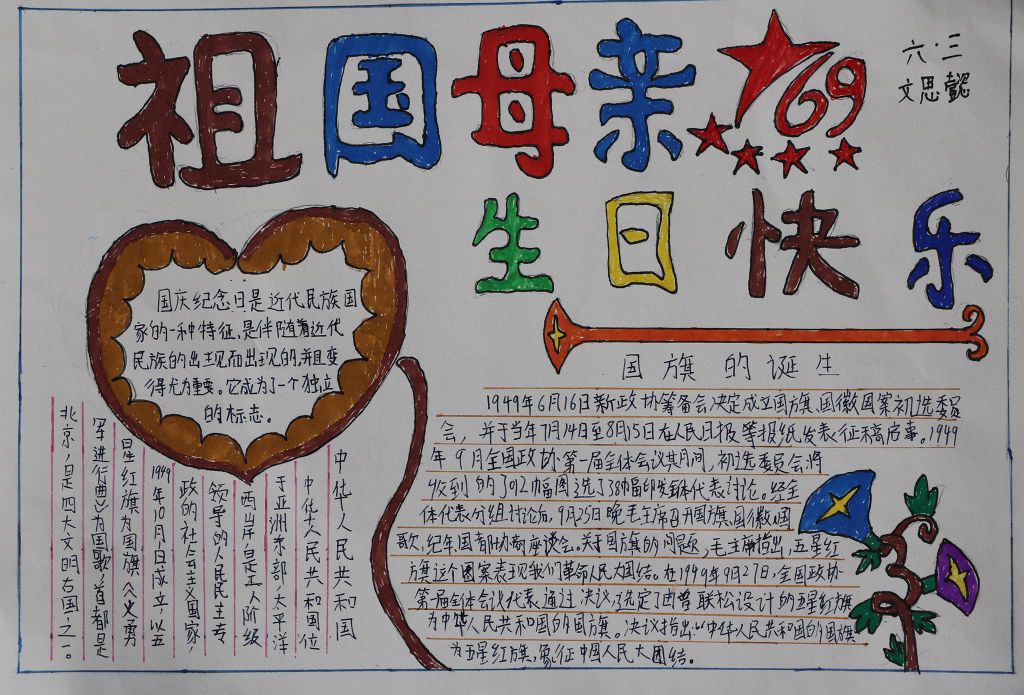 祖国母亲
69
六·三
文思懿
生日快乐
国庆纪念日是近代民族国
家的一种特征,是伴随着近代
民族的出现而出现的,并且变
得尤为重要。它成为了一个独立
的标志。
国旗的诞生
1949年6月16日新政协筹备会决定成立国旗、国徽图案初选委员
会,并于当年7月14日至8月15日在人民日报等报纸发表征稿启事。1949
年9月全国政协第一届全体会议其间,初选委员会将
收到的3012幅图选了38幅印发全体代表讨论。经全
体代表分组讨论后,9月25日晚毛主席召开国旗、国徽、国
歌、纪年、国都协商座谈会。关于国旗的问题,毛主席指出,五星红
旗这个图案表现我们革命人民大团结。在1949年9月27日,全国政协
第一届全体会议代表通过决议,选定了由曾联松设计的五星红旗
为中华人民共和国的国旗。决议指出:以中华人民共和国的国旗
为五星红旗,象征中国人民大团结。
中华人民共和国
中华人民共和国位
于亚洲东部,太平洋
西岸,是工人阶级
领导的人民民主专
政的社会主义国家,
1949年10月1日成立,以五
星红旗为国旗,《义勇
军进行曲》为国歌,首都是
北京,是四大文明古国之一。